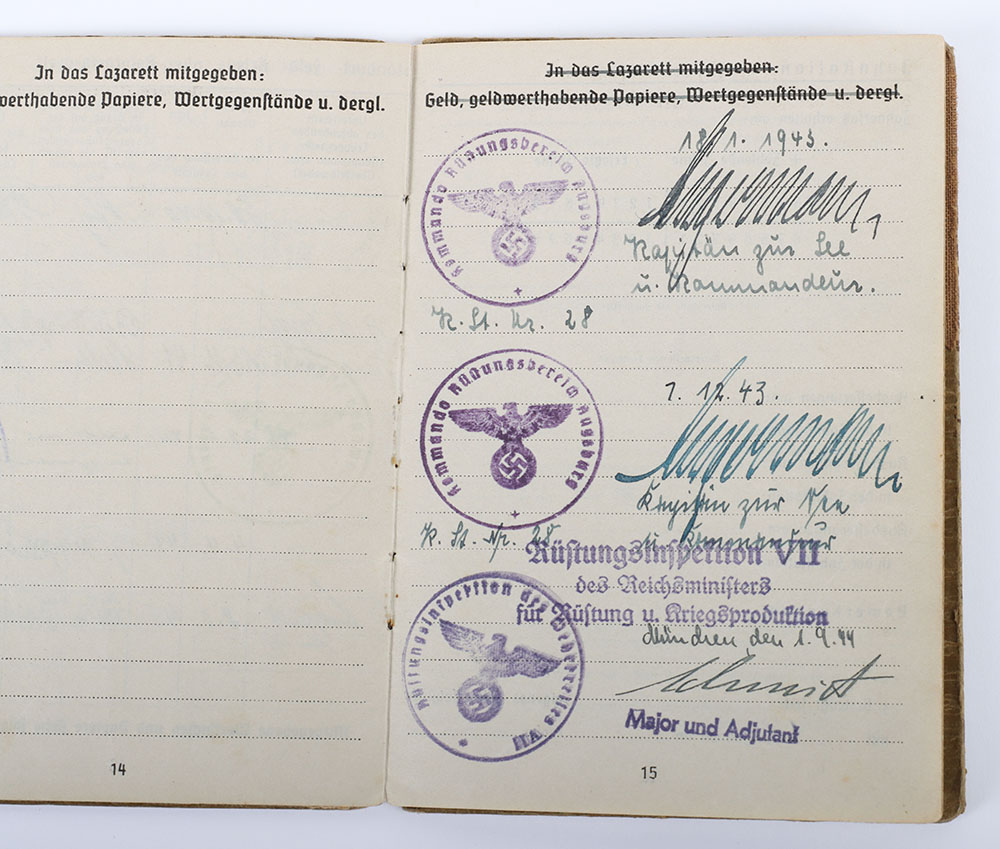 In das Lazarett mitgegeben:
werthabende Papiere, Wertgegenstände u. dergl.
14
In das Lazarett mitgegeben:
Geld, geldwerthabende Papiere, Wertgegenstände u. dergl.
18.1.1943.
Kommando Rüstungsbereich Augsburg
Kapitän zur See
u. Kommandeur.
K. St. Nr. 28
1.12.43.
Kommando Rüstungsbereich Augsburg
Kapitän zur See
u. Kommandeur
K. St. Nr. 28.
Rüstungsinspektion VII
des Reichsministers
für Rüstung u. Kriegsproduktion
München den 1.9.44
Rüstungsinspektion des Wehrkreises VII
Schmidt
Major und Adjutant
15